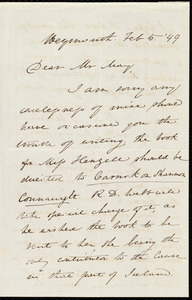 Weymouth Feb 5 '49
Dear Mr May,
I am sorry any
carelessness of mine should
have occasioned you the
trouble of writing, the book
for Miss Henzell should be
directed to Carrick on Shannon
Connaught R. D. Webb will
take special charge of it, as
he wished the book to be
sent to her, she being the
only contributor to the cause
in that part of Ireland.